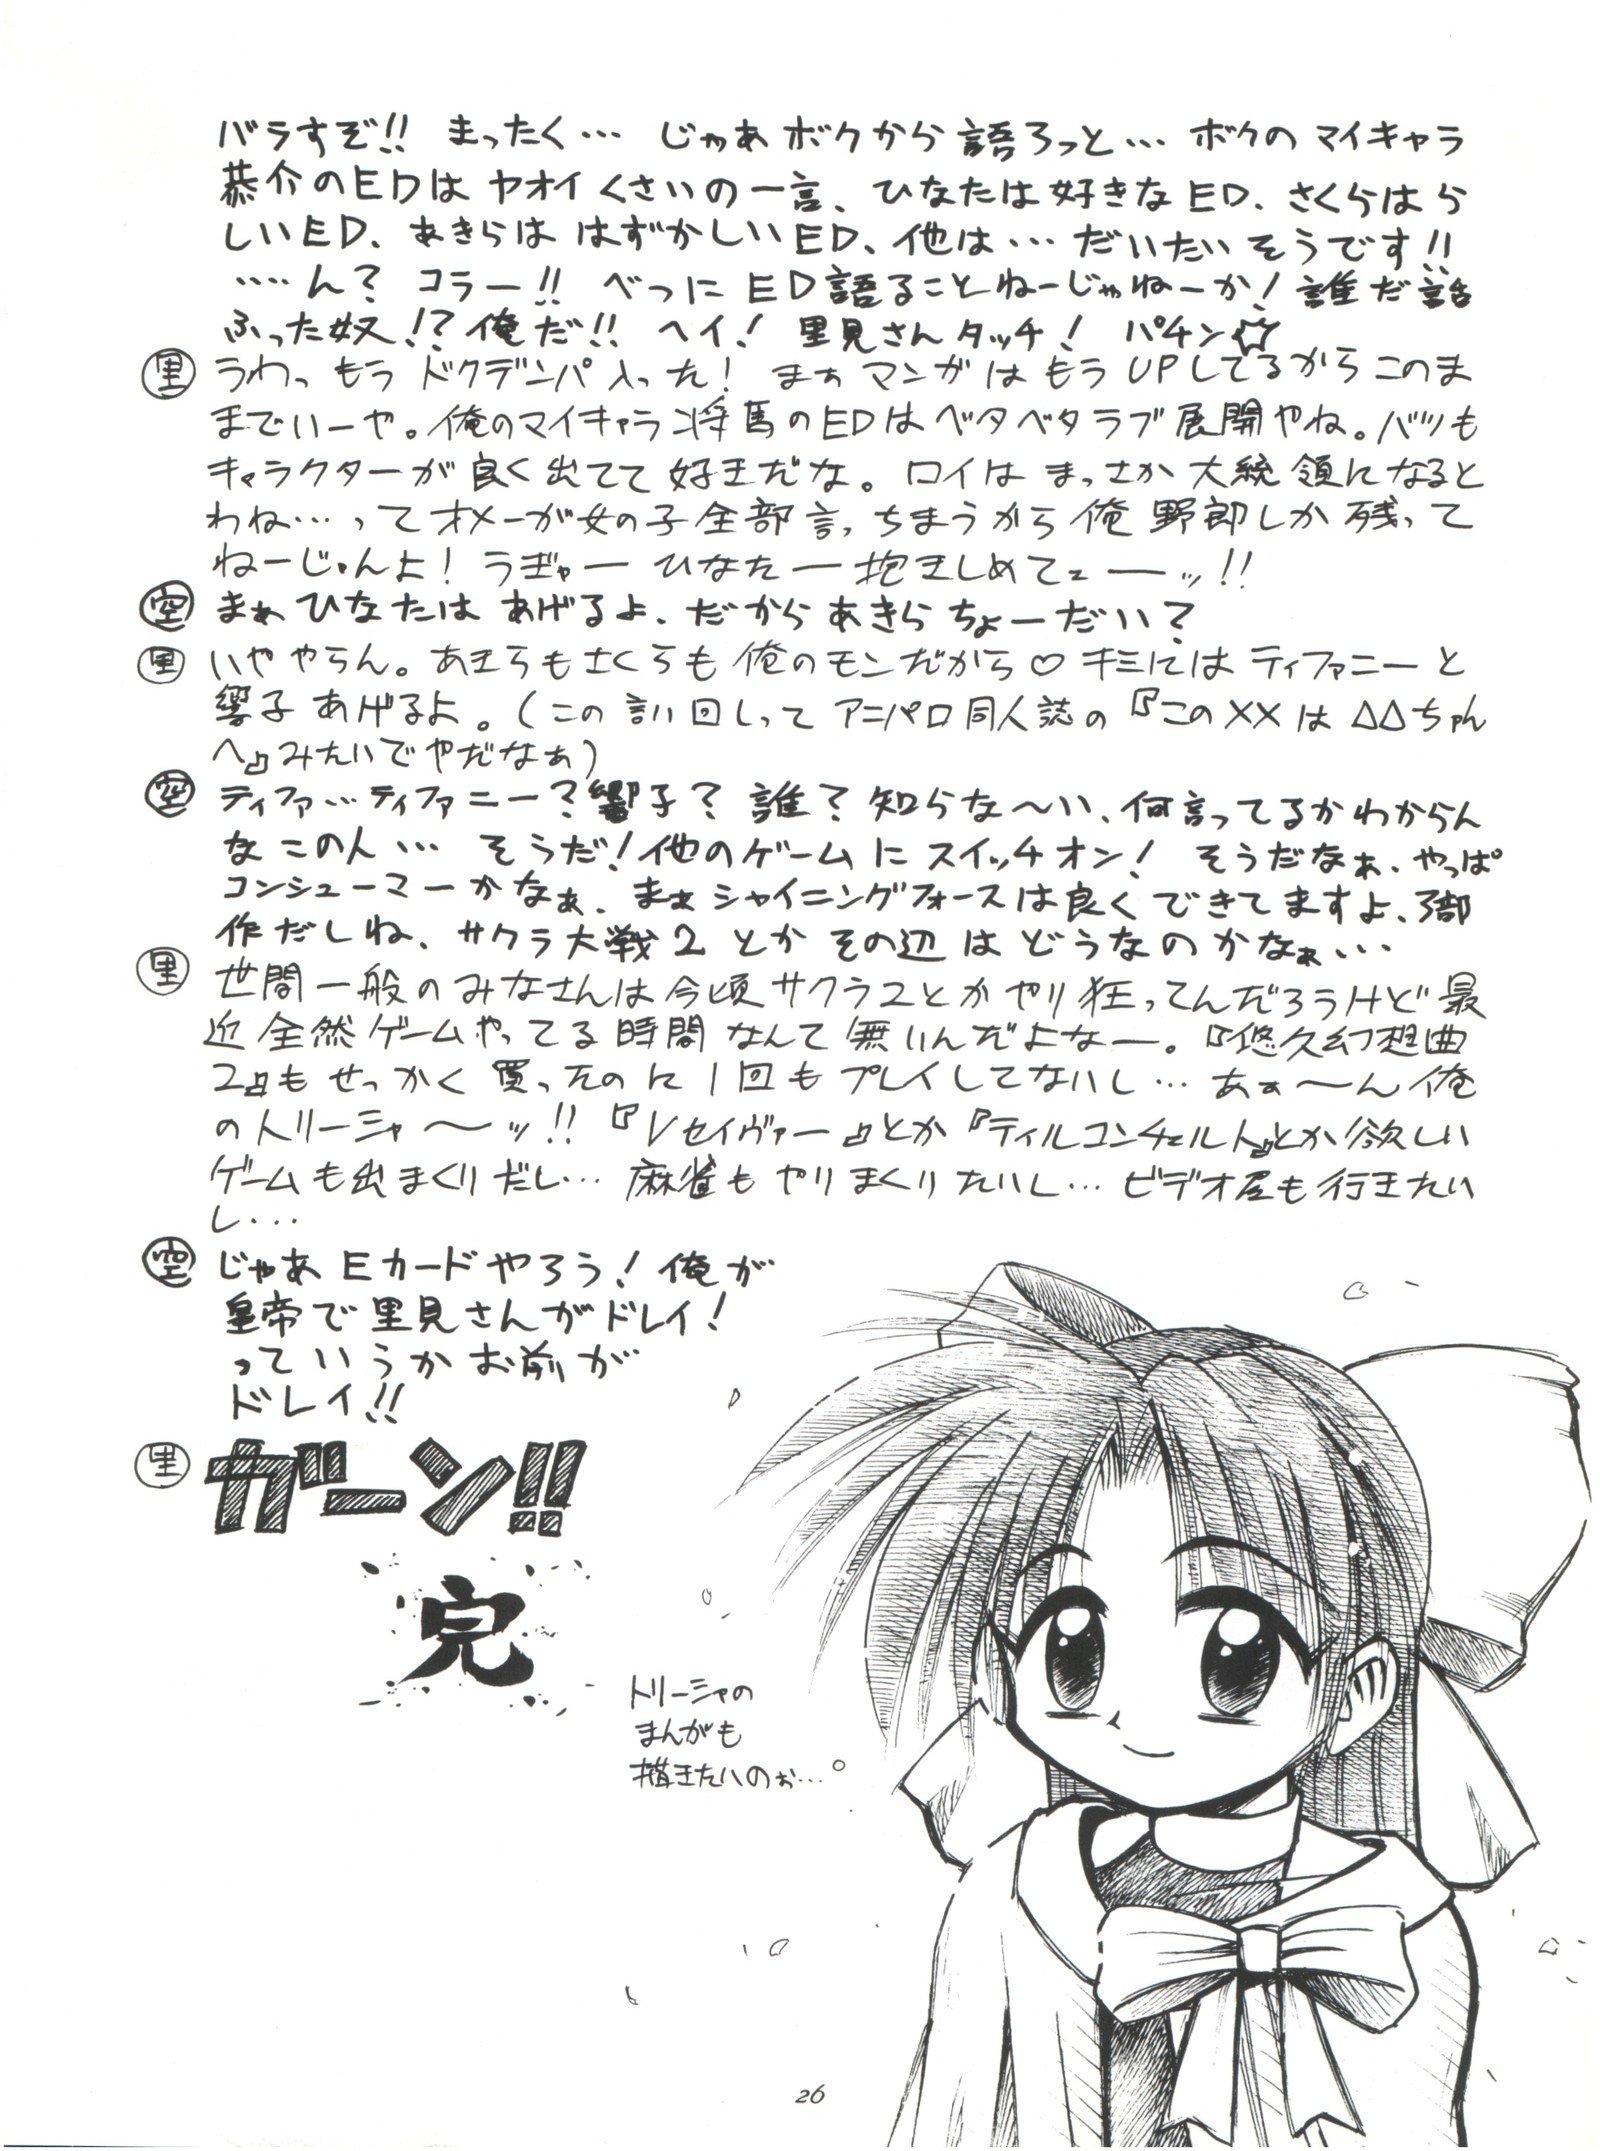 バラすぞ!! まったく… じゃあボクから語ろっと… ボクのマイキャラ
恭介のEDはヤオイくさいの一言、ひなたは好きなED、さくらはら
しいED、あきらははずかしいED、他は…だいたいそうです!!
……ん? コラー!! べつにED語ることねーじゃねーか! 誰だ話
ふった奴!? 俺だ!! ヘイ! 里見さんタッチ! パチン☆
里 うわっもうドクデンパ入った! まぁマンガはもうUPしてるからこのま
までいーや。俺のマイキャラ将馬のEDはベタベタラブ展開やね。バツも
キャラクターが良く出てて好きだな。ロイはまっさか大統領になると
わね…ってオメーが女の子全部言っちまうから俺野郎しか残って
ねーじゃんよ! うぎゃー ひなたー抱きしめてェーーッ!!
空 まぁひなたはあげるよ、だからあきらちょーだい?
里 いややらん。あきらもさくらも俺のモンだから♡ キミにはティファニーと
響子あげるよ。(この言い回しってアニパロ同人誌の『この××は△△ちゃん
へ』みたいでやだなぁ)
空 ティファ…ティファニー?響子?誰?知らな〜い、何言ってるかわからん
なこの人… そうだ!他のゲームにスイッチオン! そうだなぁ、やっぱ
コンシューマーかなぁ、まぁシャイニングフォースは良くできてますよ、3部
作だしね、サクラ大戦2とかその辺はどうなのかなぁ…
里 世間一般のみなさんは今頃サクラ2とかやり狂ってんだろうけど最
近全然ゲームやってる時間なんて無いんだよなー。『悠久幻想曲
2』もせっかく買ったのに1回もプレイしてないし…あぁ〜ん俺
のトリーシャ〜ッ!!『Vセイヴァー』とか『ティルコンチェルト』とか欲しい
ゲームも出まくりだし…麻雀もやりまくりたいし…ビデオ屋も行きたい
し…
空 じゃあEカードやろう! 俺が
皇帝で里見さんがドレイ!
っていうかお前が
ドレイ!!
里 ガーン!!
完
トリーシャの
まんがも
描きたいのぉ…。
26